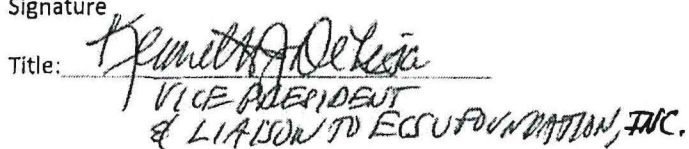 Signature
Title: Kenneth J DeLisa
VICE PRESIDENT
& LIAISON TO ECSU FOUNDATION, INC.